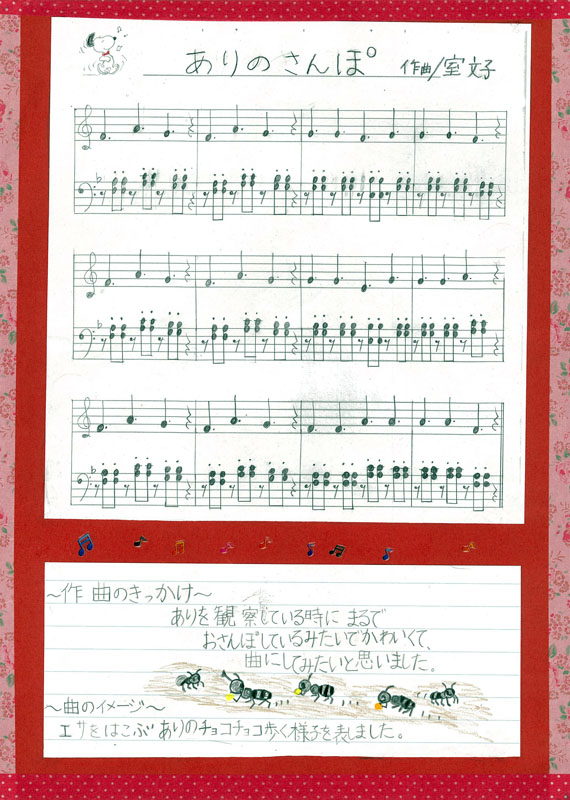 ありのさんぽ 作曲/室 文子
～作曲のきっかけ～
ありを観察している時にまるで
おさんぽしているみたいでかわいくて、
曲にしてみたいと思いました。
～曲のイメージ～
エサをはこぶありのチョコチョコ歩く様子を表しました。